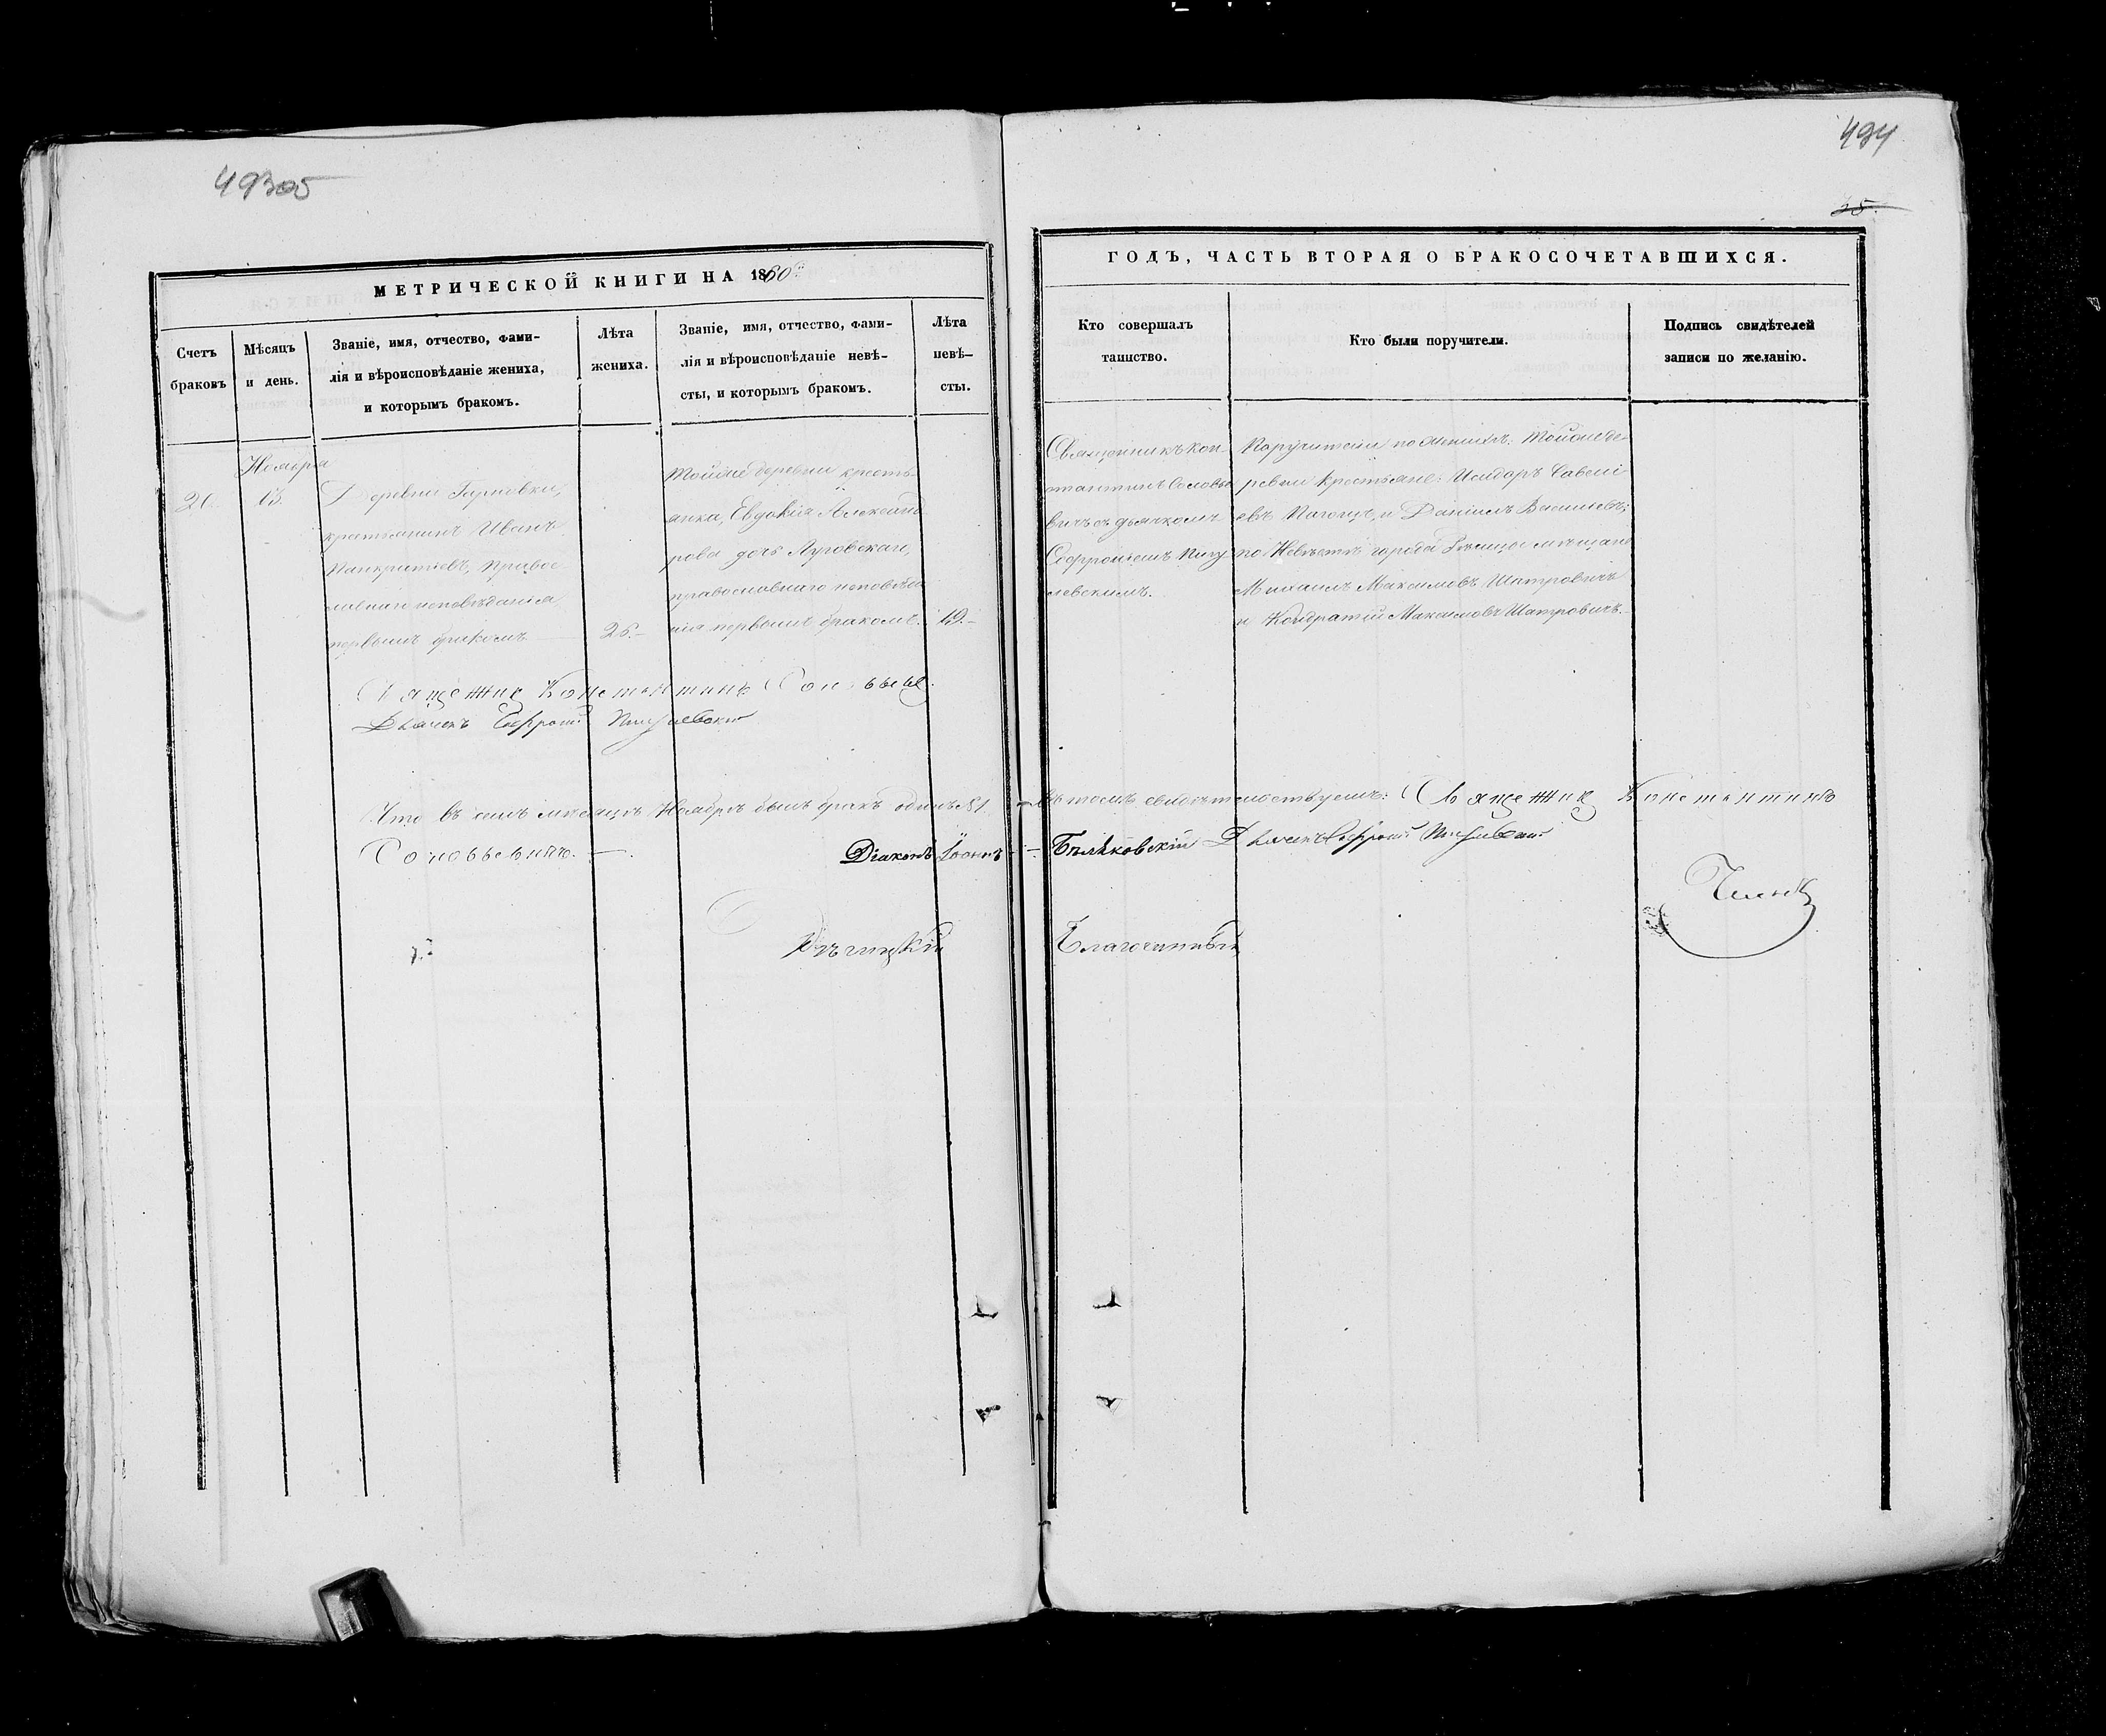 494
МЕТРИЧЕСКОЙ КНИГИ НА 1860й
ГОДЪ, ЧАСТЬ ВТОРАЯ О БРАКОСОЧЕТАВШИХСЯ.
Счетъ
браковъ
Мѣсяцъ
и день.
Званіе, имя, отчество, фами-
лія и вѣроисповѣданіе жениха,
и которымъ бракомъ.
Лѣта
жениха.
Званіе, имя, отчество, фами-
лія и вѣроисповѣданіе невѣ-
сты, и которымъ бракомъ.
Лѣта
невѣ-
сты.
Кто совершалъ
таинство.
Кто были поручители.
Подпись свидѣтелей
записи по желанію.
Ноября
13.
Деревни
крестьянинъ Иванъ
Панкратіевъ, Правос
лавнаго исповѣданія
первымъ бракомъ
Тойже деревни кресть-
янка, Евдокія Александ
рова дочь Луговская,
православнаго исповѣда
нія первымъ бракомъ.
19.
Священникъ Кон-
стантинъ Соловье
вичъ съ дьячкомъ
Софроніемъ
левскимъ.
Поручители по женихѣ: Тойжеде-
ревни крестьяне: Исидоръ Савелі
евъ и Даніилъ Васильевъ;
по Невѣстѣ города мѣщане
Михаилъ Максимовъ Шатровичъ
и Кондратій Максимовъ Шатровичъ.
Священникъ Константинъ
Дьячекъ Софроній
Что въ семъ мѣсяцѣ Ноябрѣ былъ бракъ одинъ №1.
въ томъ свидѣтельствуемъ: Священникъ Константинъ
Соловьевичъ.
Діаконъ Іоаннъ
Бѣляковскій Дьячекъ Софроній
Рѣчицкій Благочинный